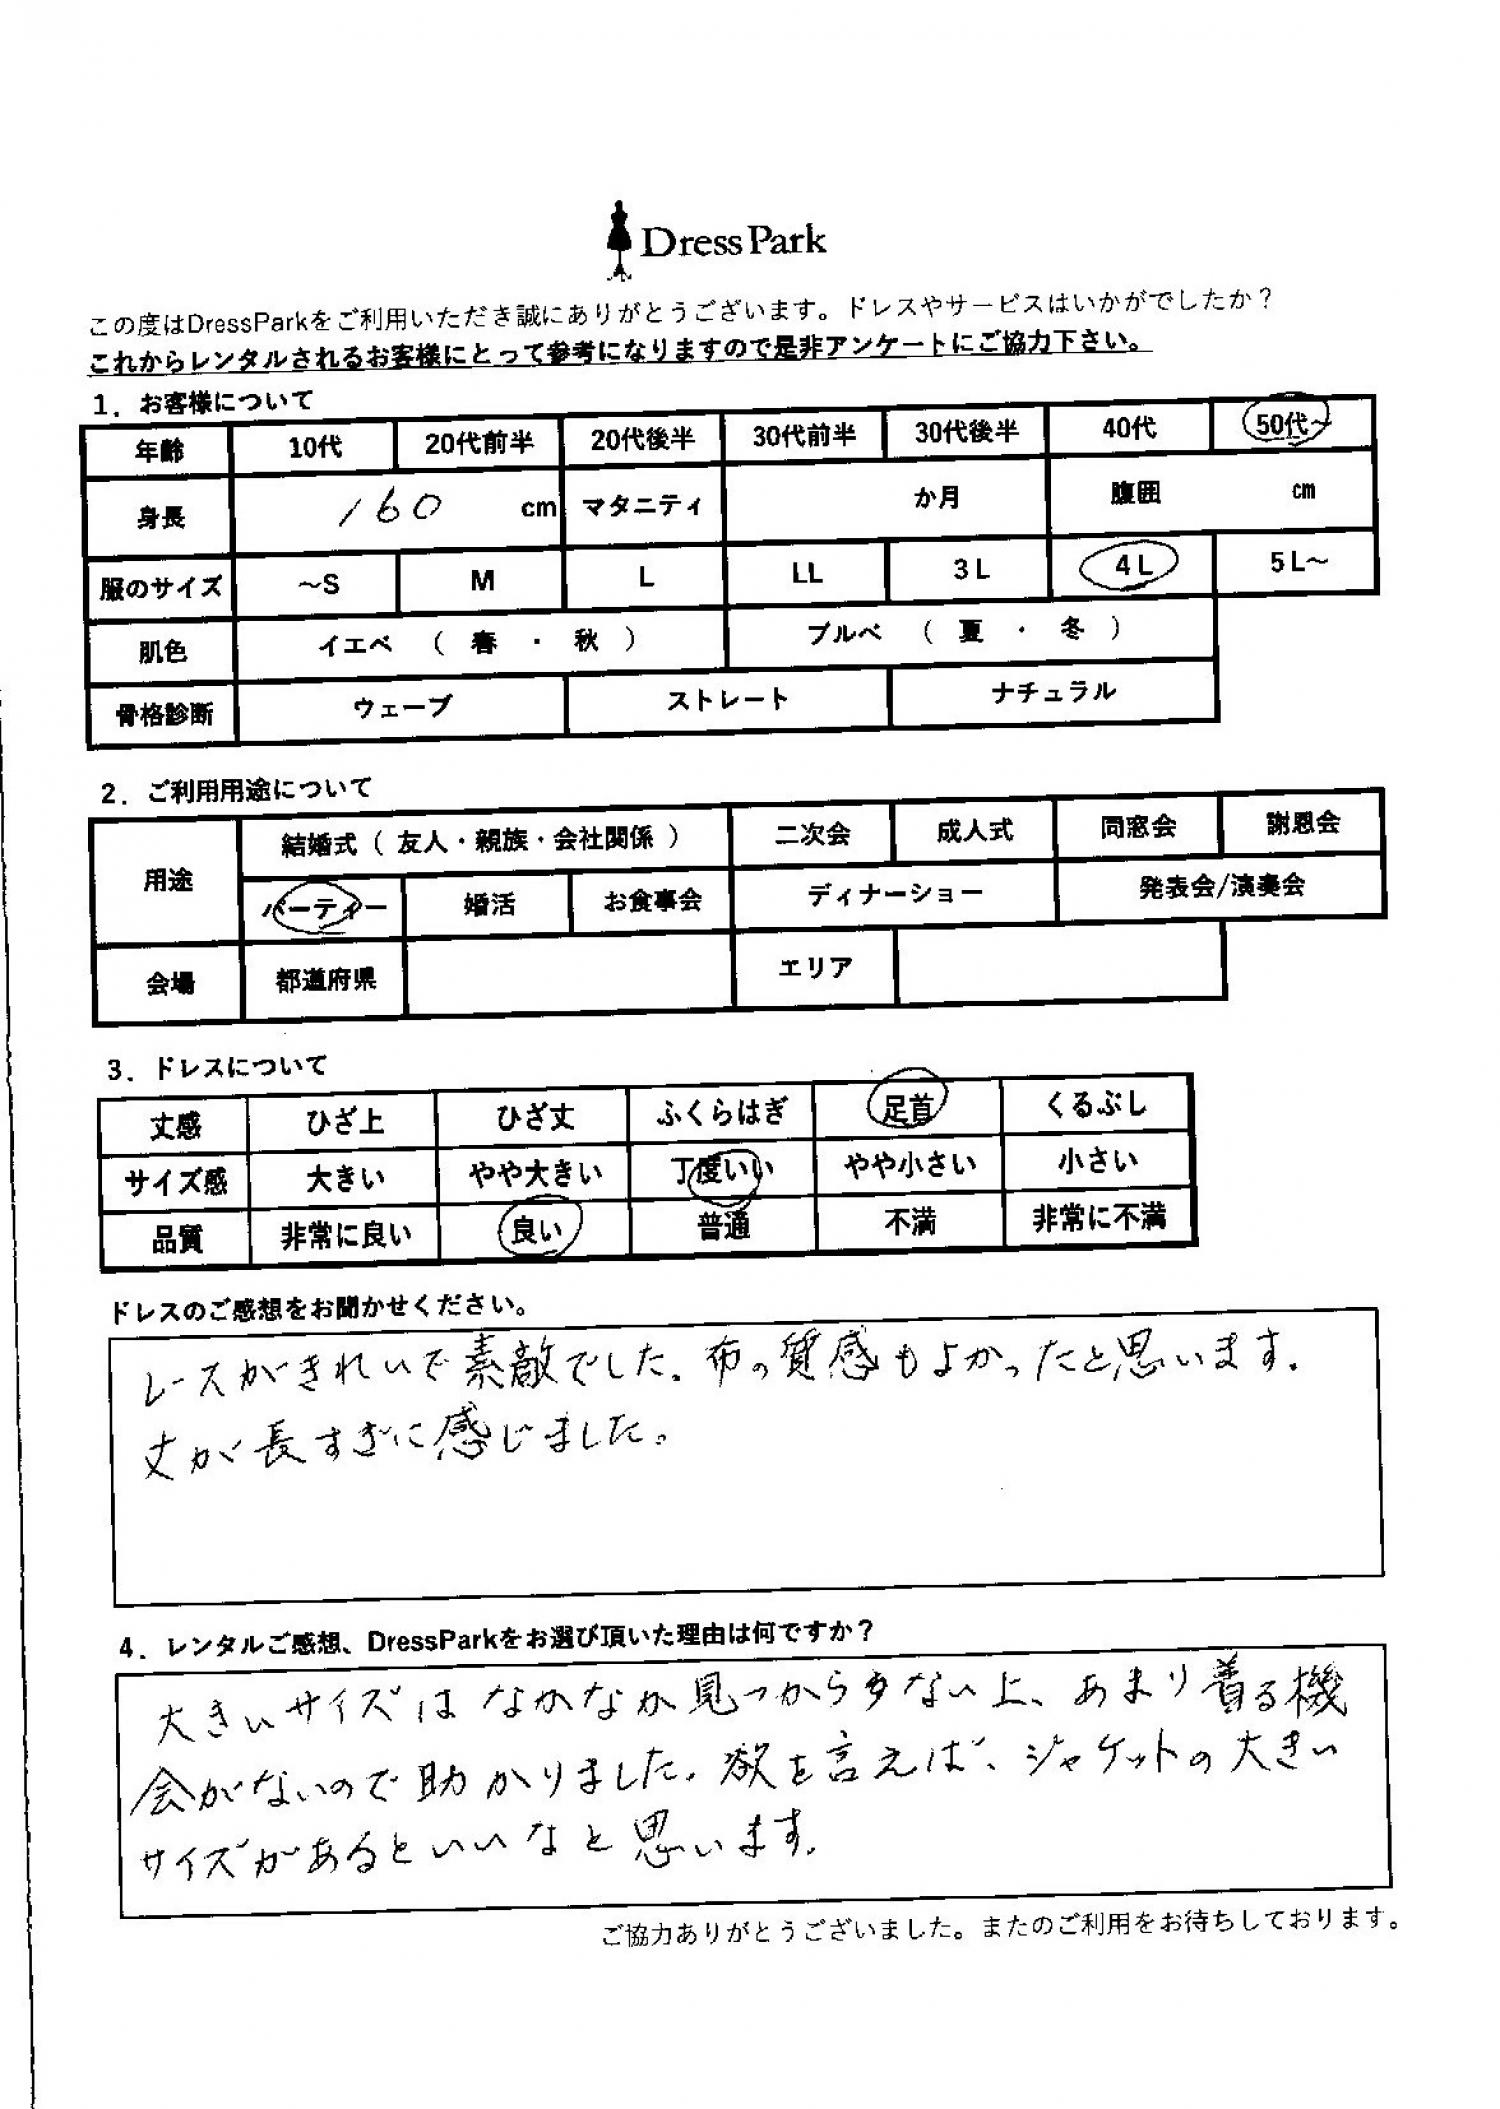 DressPark
この度はDressParkをご利用いただき誠にありがとうございます。ドレスやサービスはいかがでしたか？
これからレンタルされるお客様にとって参考になりますので是非アンケートにご協力下さい。
1．お客様について
年齢 10代 20代前半 20代後半 30代前半 30代後半 40代 50代~
身長 160 cm マタニティ か月 腹囲 cm
服のサイズ ～S M L LL 3L 4L 5L～
肌色 イエベ （ 春 ・ 秋 ） ブルベ （ 夏 ・ 冬 ）
骨格診断 ウェーブ ストレート ナチュラル
2．ご利用用途について
用途 結婚式（ 友人・親族・会社関係 ） 二次会 成人式 同窓会 謝恩会
パーティー 婚活 お食事会 ディナーショー 発表会/演奏会
会場 都道府県 エリア
3．ドレスについて
丈感 ひざ上 ひざ丈 ふくらはぎ 足首 くるぶし
サイズ感 大きい やや大きい 丁度いい やや小さい 小さい
品質 非常に良い 良い 普通 不満 非常に不満
ドレスのご感想をお聞かせください。
レースがきれいで素敵でした。布の質感もよかったと思います。
丈が長すぎに感じました。
4．レンタルご感想、DressParkをお選び頂いた理由は何ですか？
大きいサイズはなかなか見つからない上、あまり着る機
会がないので助かりました。欲を言えば、ジャケットの大きい
サイズがあるといいなと思います。
ご協力ありがとうございました。またのご利用をお待ちしております。